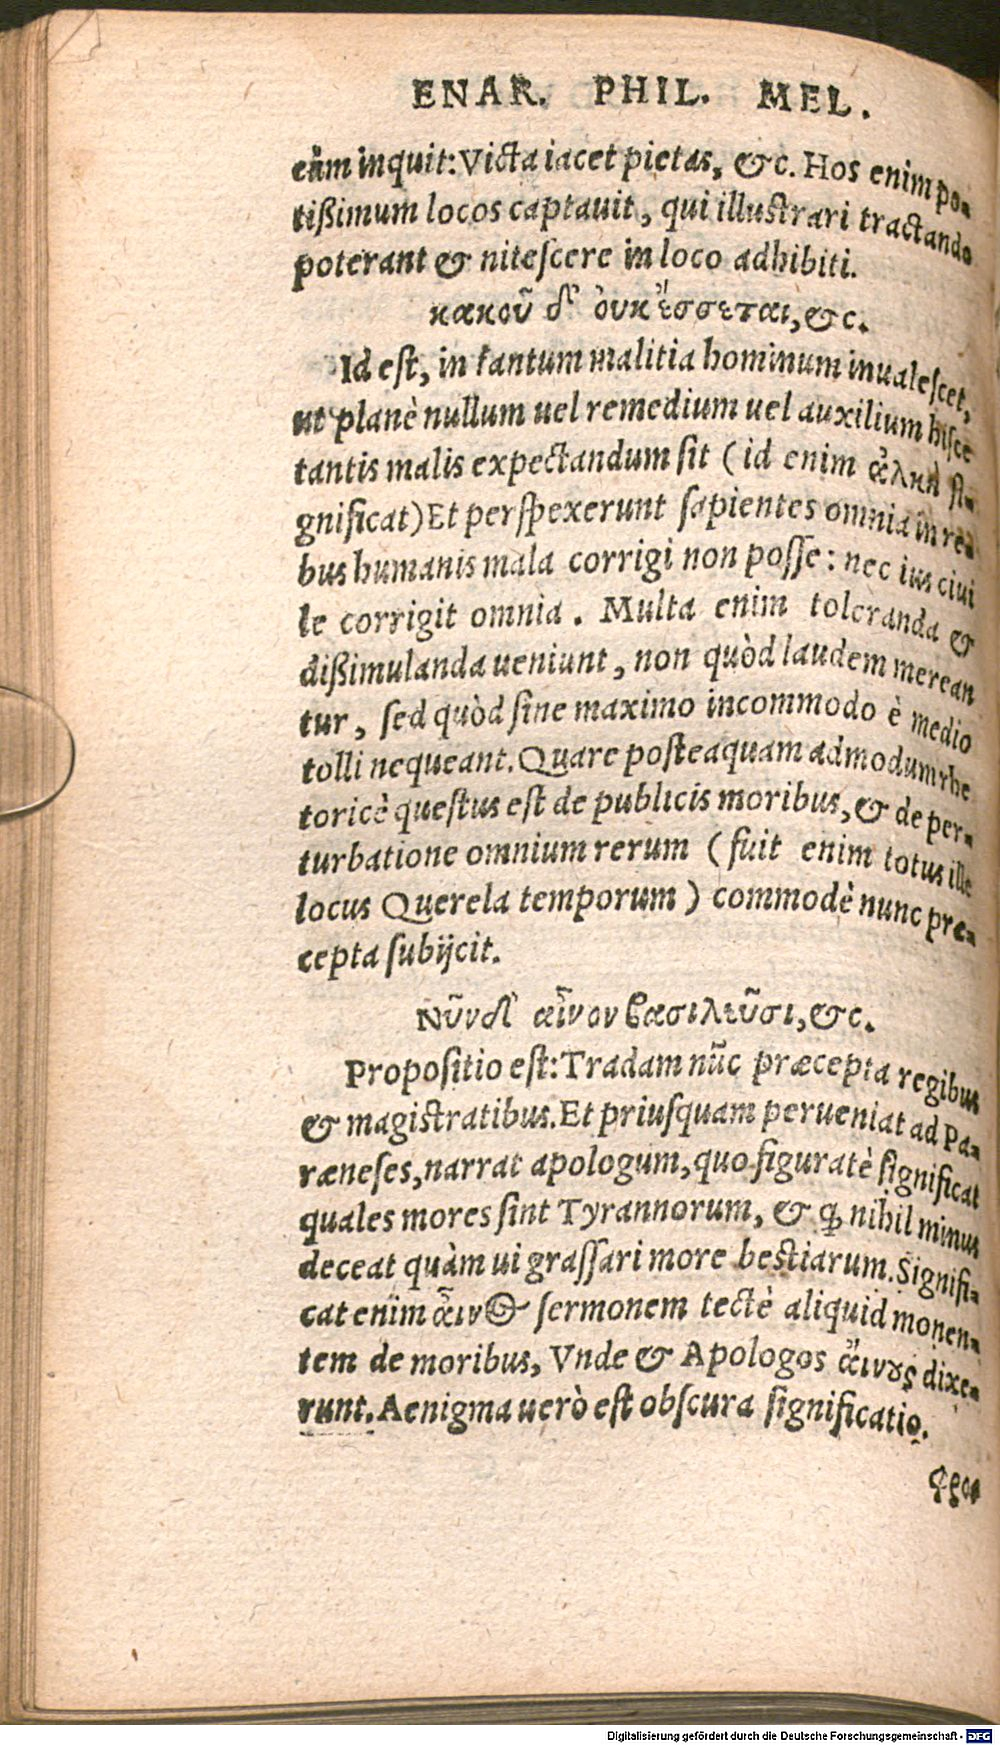 ENAR. PHIL. MEL.
eũm inquit: Victa iacet pietas, &c. Hos enim po-
tißimum locos captauit, qui illustrari tractando
poterant & nitescere in loco adhibiti.
κακοῦ δ' ὀυκ ἔσσεται, &c.
Id est, in tantum malitia hominum inualescet,
ut planè nullum uel remedium uel auxilium hisce
tantis malis expectandum sit (id enim ἀλκὴ si-
gnificat) Et perspexerunt sapientes omnia in re-
bus humanis mala corrigi non posse: nec ius ciui
le corrigit omnia. Multa enim toleranda &
dißimulanda ueniunt, non quòd laudem merean
tur, sed quòd sine maximo incommodo è medio
tolli nequeant. Quare posteaquam admodum rhe
toricè questus est de publicis moribus, & de per-
turbatione omnium rerum (fuit enim totus ille
locus Querela temporum) commodè nunc præ-
cepta subijcit.
Νῦν δ' αἶνον βασιλεῦσι, &c.
Propositio est: Tradam nũc præcepta regibus
& magistratibus. Et priusquam perueniat ad Pa-
ræneses, narrat apologum, quo figuratè significat
quales mores sint Tyrannorum, & ꝙ nihil minus
deceat quàm ui grassari more bestiarum. Signifi-
cat enim ἆινος sermonem tectè aliquid monen-
tem de moribus, Vnde & Apologos ἄινους dixe-
runt. Aenigma uerò est obscura significatio.
Digitalisierung gefördert durch die Deutsche Forschungsgemeinschaft - DFG